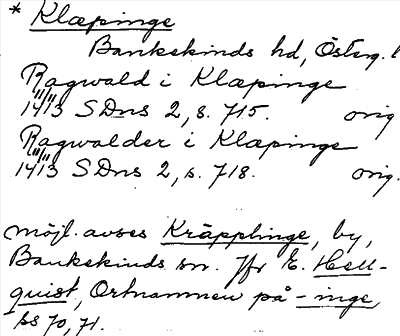 * Klæpinge
Bankekinds hd, Österg. l
Ragwald i Klæpinge
14 11/11 13 SDns 2, s. 715. orig
Ragwalder i Klæpinge
14 11/11 13 SDns 2, s. 718. orig.
möjl. avses Kräpplinge, by,
Bankekinds sn. Jfr E. Hell-
quist, Ortnamnen på -inge,
ss 70, 71.